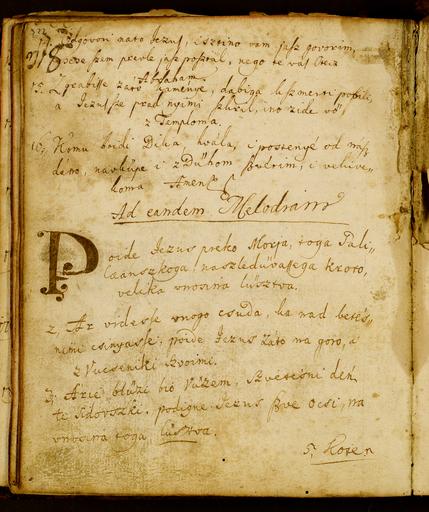 odgovori nato Jezus, isztino vam jusz govorim,
sze szem perle jasz posztal, nego te vas Otecz
Abraham.
15. Zgrabisse zato kamenye, dabiga k szmerti pobili,
a Jezusse pred nyimi szkril, ino zide vö
z Temploma.
16. Komu boidi Dika, hvála, i postenye od nasz
dáno, navküpe i z Dühom Szvétim, i vekive-
koma Amen.
Ad eandem Melodiam
Poide Jezus preko Morja, toga Gali-
laanszkoga: naszledüvassega kroto,
velika vnosina lüsztva.
2, Ar videsse vnogo csuda, ka nad betes-
nimi csinyasse, poide Jezus zato na goro, a
z Vucseniki szvoimi.
3. Arie blüzi bio Vüzem, szvetesni dén
te Sidovszki, podigne Jezus szve ocsi, na
vnosina toga lüsztva.